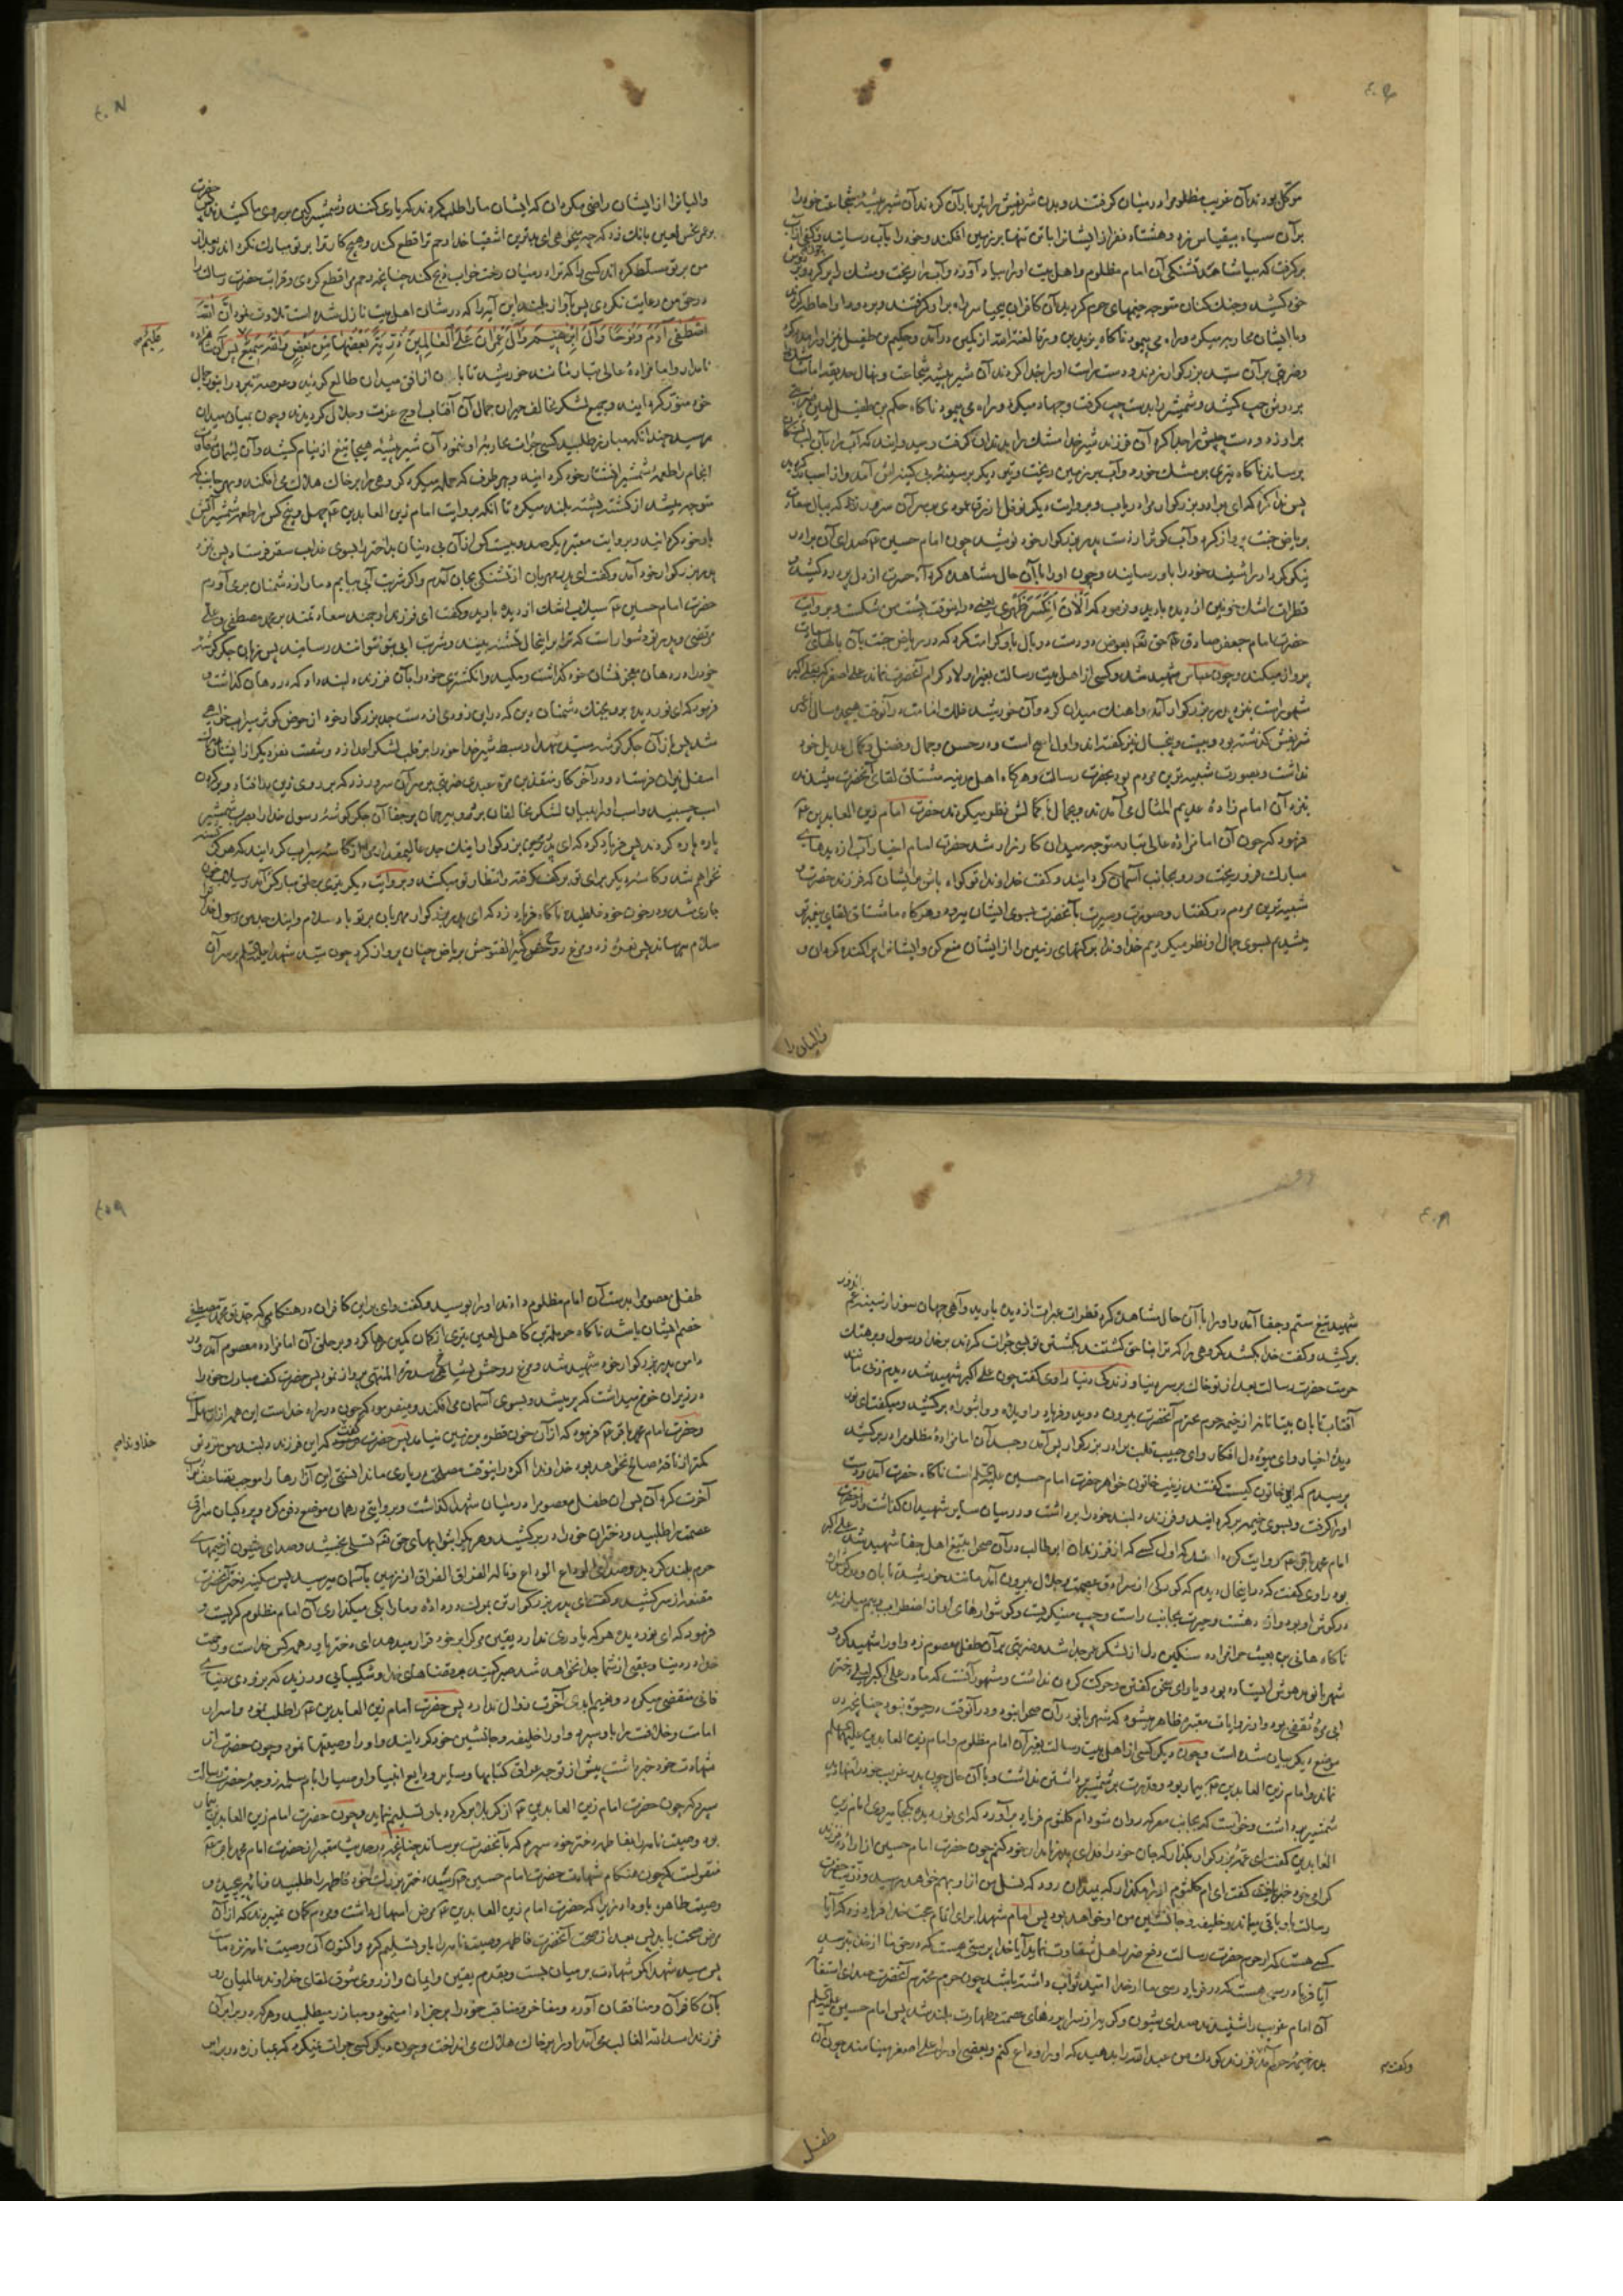 موکل بودند آن غریب مظلوم را در میان گرفتند و بدن شریفش را تیر باران کردند آن شیر بیشه شجاعت خود را
بر آن سپاه بیقیاس زد و هشتاد نفر از ایشان را با تن تنها بر زمین افکند و خود را بآب رسانید و کفی از آب
برگرفت که بیاشامد تشنگی آن امام مظلوم و اهل بیت او را بیاد آورد و آب را ریخت و مشک را پر کرد و بر
خود کشید و جنک کنان متوجه خیمهای حرم گردید آن کافران بیحیا سر راه بر او گرفتند و بر دور او احاطه کردند
و با ایشان محاربه میکرد و راه می پیمود ناگاه
و ضربتی بر آن سید بزرگوار زدند و دست راست او را جدا کردند آن شیر بیشه شجاعت و نهال حدیقه امامت
بر دوش چپ کشید و شمشیر را بدست چپ گرفت و جهاد میکرد و راه می پیمود ناگاه حکیم بن طفیل لعین ضربتی
بر او زد و دست چپش را جدا کرد آن فرزند شیر خدا مشک را بدندان گرفت و میدوانید که آب را بآن لب تشنگان
برساند ناگاه تیری بر مشک خورد و آب بر زمین ریخت و تیر دیگر بر سینه بی کینه اش آمد و از اسب
پس ندا کرد که ای برادر بزرگوار مرا دریاب و بروایت دیگر نوفل ازرق عمودی بر سر آن سرور زد که ببال سعادت
بریاض جنت پرواز کرد و آب کوثر از دست پدر بزرگوار خود نوشید چون امام حسین ع صدای آن برادر
نیکو کردار را شنید خود را باو رسانید و چون او را بآن حال مشاهده کرد آه حسرت از دل پر درد کشید
قطرات اشک خونین از دیده بارید و فرمود که اَلْاٰنَ اِنْکَسَرَ ظَهْرِی یعنی در اینوقت پشت من شکست و بروایت
حضرت امام جعفر صادق ع حق تعالی بعوض دو دست دو بال باو کرامت کرد که در ریاض جنت بآن بالهای
پرواز میکند و چون عباس شهید شد و کسی از اهل بیت رسالت بغیر اولاد کرام آنحضرت نماند علی اصغر که بعلی اکبر
شهور است بنزد پدر بزرگوار آمد و اهنک میدان کرد و آن خورشید فلک امامت در آنوقت هیجده سال از عمر
شریفش گذشته بود و بیست و پنجسال نیز گفته اند و اول اصح است و در حسن و جمال و فضل و کمال عدیل خود
نداشت و بصورت شبیه ترین مردم بود بحضرت رسالت و هرگاه اهل مدینه مشتاق لقای آنحضرت میشدند
بنزد آن امام زادهٔ عدیم المثال می آمدند و بجمال با کمالش نظر میکردند حضرت امام زین العابدین ع
فرمود که چون آن امامزادهٔ عالی تبار متوجه میدان کارزار شد حضرت امام اخیار آب از دیدهای
مبارک فرو ریخت و رو بجانب آسمان گردانید و گفت خداوندا تو گواه باش بر ایشان که فرزند حضرت
شبیه ترین مردم در گفتار و صورت و سیرت بآنحضرت بسوی ایشان میرود و هرگاه ما مشتاق لقای پیغمبر تو
میشدیم بسوی جمال او نظر میکردیم خداوندا برکتهای زمین را از ایشان منع کن و ایشانرا پراکنده گردان و
والیانرا از ایشان راضی مگردان که ایشان ما را طلب کردند که یاری کنند و شمشیر کین بر روی ما کشیدند پس حضرت
بر عمر نحس لعین بانک زد که چه میخواهی ای بدترین اشقیا خدا رحم ترا قطع کند و هیچ کار ترا بر تو مبارک نگرداند و بعد از
من بر تو مسلط گرداند کسی را که ترا در میان رخت خواب ذبح کند چنانچه رحم مرا قطع کردی و قرابت حضرت رسالت را
در حق من رعایت نکردی پس بآواز بلند این آیه را که در شان اهل بیت نازل شده است تلاوت نمود اِنَّ اللّٰهَ
اصْطَفٰی آدَمَ وَنُوحًا وَآلَ اِبْرٰهِیمَ وَآلَ عِمْرٰانَ عَلَی الْعٰالَمِینَ ذُرِّیَّةً بَعْضُهٰا مِنْ بَعْضٍ وَاللّٰهُ سَمِیعٌ
علیم
نامدار و امامزادهٔ عالی تبار مانند خورشید تابان از افق میدان طالع گردید و عرصه نبرد را بنور جمال
خود منور گردانید و جمیع لشکر مخالف حیران جمال آن آفتاب اوج عزت و جلال گردیدند و چون بمیان میدان
رسید چندانکه مبارز طلبید کسی جرات محاربه او ننمود آن شیر بیشه هیجا تیغ از نیام کشید
انجام را طعمهٔ شمشیر خود گردانید و بهر طرف که حمله میکرد گروهی را بر خاک هلاک می افکند و بهر جانب که
متوجه میشد از کشته پشته بلند میکرد تا آنکه بروایت امام زین العابدین ع چهل و پنج کس را طعمه شمشیر آتش
بار خود گردانید و بروایت معتبر دیگر صد و بیست کس از آن بی دینان بد اختر را بسوی عذاب سقر فرستاد پس بنزد
پدر بزرگوار خود آمد و گفت ای پدر مهربان از تشنگی بجان آمدم و اگر شربت آبی بیابم دمار از دشمنان بر می آورم
حضرت امام حسین ع سیلاب اشک از دیده بارید و گفت ای فرزند ارجمند سعادتمند بر محمد مصطفی و علی
مرتضی و پدر تو دشوار است که ترا بر اینحال تشنه ببینند و شربت آبی بتو نتوانند رسانید پس زبان جگر گوشه
خود را در دهان معجز نشان خود گذاشت و مکید و انگشتری خود را بآن فرزند دلبند داد که در دهان گذاشت و
فرمود که ای نور دیده برو بجنک دشمنان دین که در این زودی از دست جد بزرگوار خود از حوض کوثر سیراب خواهی
شد پس از آن جگر گوشه سید شهدا و سبط شیر خدا خود را بر قلب لشکر اعدا زد و شصت نفر دیگر از ایشان را
اسفل نیران فرستاد و در آخر کار منقذ بن مره عبدی ضربتی بر سر آن سرور زد که بر روی زین در افتاد و بر گردن
اسب چسبید و اسب او را بمیان لشکر مخالفان برد و بیرحمان پر جفا آن جگر گوشهٔ رسول خدا را بضرب شمشیر
پاره پاره کردند پس فریاد کرد که ای پدر بزرگوار اینک جد عالیمقدار مرا از کاسه سیراب گردانید که هرگز تشنه
نخواهم شد و کاسه دیگر برای تو بر کف گرفته و انتظار تو میکشد و بروایت دیگر تیری بر حلق مبارکش آمد و سیلاب خون
جاری شد و در خون خود غلطید ناگاه فریاد زد که ای پدر بزرگوار مهربان بر تو باد سلام و اینک جد من رسول خدا ترا
سلام میرساند پس نعره زد و مرغ روح بریاض جنان پرواز کرد چون سید شهدا بر سر آن
شهید تیغ ستم و جفا آمد و او را بآن حال مشاهده کرد قطرات عبرات از دیده بارید و آهی جهان سوز از سینهٔ غم
برکشید و گفت خدا بکشد گروهی را که ترا بنا حق کشتند بکشتن تو بسی جرات کردند بر خدا و رسول و بر هتک
حرمت حضرت رسالت بعد از تو خاک بر سر دنیا و زندگی دنیا راوی گفت چون علی اکبر شهید شد دیدم زنی مانند
آفتاب تابان بیتابانه از خیمه حرم محترم آنحضرت بیرون دوید و فریاد واویلاه و واثبوراه برکشید و میگفت ای نور
دیدهٔ اخیار و ای میوهٔ دل افکار و ای حبیب قلب برادر بزرگوار پس آمد و جسد آن امامزادهٔ مظلوم را در بر کشید
پرسیدم که این خاتون کیست گفتند زینب خاتون خواهر حضرت امام حسین علیه السلام است ناگاه حضرت آمد و دست
او را گرفت و بسوی خیمه برگردانید و فرزند دلبند خود را برداشت و در میان سایر شهیدان گذاشت و از حضرت
امام محمد باقر ع روایت کرده اند که اول کسی که از فرزندان ابی طالب در آن صحرا بتیغ اهل جفا شهید شد علی اکبر
بود راوی گفت که در اینحال دیدم که کودکی از سرادق عصمت و جلال بیرون آمد مانند خورشید تابان و دو گوشواره
در گوش او بود و از دهشت و حیرت بجانب راست و چپ مینگریست و گوشوارهای او از اضطراب بهم میلرزید
ناگاه هانی بن بعیث حرامزاده سنگین دل از لشکر عمر جدا شد و ضربتی بر آن طفل معصوم زد و او را شهید کرد و
شهربانو مدهوش ایستاده بود و یارای سخن گفتن و حرکت کردن نداشت و مشهور آنست که مادر علی اکبر لیلی دختر
ابی مره ثقفی بود و از روایات معتبره ظاهر میشود که شهربانو در آن صحرا نبود و در آنوقت در حیوة نبود چنانچه در
موضع دیگر بیان شده است و چون دیگر کسی از اهل بیت رسالت بغیر آن امام مظلوم و امام زین العابدین علیهما السلام
نماند و امام زین العابدین ع بیمار بود و قدرت بر شمشیر برداشتن نداشت و با آن حال چون پدر غریب خود را تنها دید
شمشیر برداشت و خواست که بجانب معرکه روان شود ام کلثوم فریاد برآورد که ای نور دیده کجا میروی امام زین
العابدین گفت ای عمه بزرگوار بگذار که جان خود را فدای پدر نامدار خود کنم چون حضرت امام حسین از ارادهٔ فرزند
گرامی خود خبر یافت گفت ای ام کلثوم او را مگذار که بمیدان رود که نسل من از او بهم خواهد رسید و ذریت حضرت
رسالت باو باقی میماند و خلیفه و جانشین من او خواهد بود پس امام شهدا برای اتمام حجت خدا فریاد زد که آیا
کسی هست که از حرم حضرت رسالت دفع ضرر اهل شقاوت نماید آیا خدا پرستی هست که در حق ما از خدا بترسد
آیا فریاد رسی هست که در فریاد رسی ما از خدا امید ثواب داشته باشد چون حرم محترم آنحضرت صدای استغاثه
آن امام غریب را شنیدند صدای شیون و گریه از سراپردهای عصمت و طهارت بلند شد پس امام حسین علیه السلام
بدر خیمهٔ حرم آمد فرزند کودک من عبد الله را بدهید که او را وداع کنم و بعضی او را علی اصغر مینامند چون آن
و گفت
طفل معصوم را بدست آن امام مظلوم دادند او را بوسید و گفت وای بر این کافران در هنگامی که جد تو محمد مصطفی
خصم ایشان باشد ناگاه حرمله بن کاهل لعین تیری از کمان کین رها کرد و بر حلق آن امامزاده معصوم آمد و در
دامن پدر بزرگوار خود شهید شد و مرغ روحش بشاخ سدرة المنتهی پرواز نمود پس حضرت کف مبارک خود را
در زیر آن خون میداشت که پر میشد و بسوی آسمان می افکند و میفرمود که چون در راه خداست این همه ازار سهل است
و حضرت امام محمد باقر ع فرمود که از آن خون قطره بر زمین نیامد پس حضرت گفت که این فرزند دلبند من نزد تو
خداوندا
کمتر از ناقه صالح نخواهد بود خداوندا اگر در اینوقت مصلحت در یاری ما ندانستی این آزارها را موجب تضاعف ثواب
آخرت گردان پس آن طفل معصوم را در میان شهدا گذاشت و بروایتی در همان موضع دفن کرد و پردگیان سرادق
عصمت را طلبید و دختران خود را در بر کشید و هر یک را بثوابهای حق تعالی تسلی بخشید و صدای شیون از خیمهای
حرم بلند گردید و صدای الوداع الوداع و ناله الفراق الفراق از زمین بآسمان میرسید پس سکینه دختر آنحضرت
مقنعه از سر کشید و گفت ای پدر بزرگوار تن بمرک در داده و ما را بکی میگذاری آن امام مظلوم گریست و
فرمود که ای نور دیده هر که یاوری ندارد یقین مرگ را بر خود قرار میدهد ای دختر یاور همه کس خداست و رحمت
خدا در دنیا و عقبی از شما جدا نخواهد شد صبر کنید بر قضاهای خدا و شکیبایی ورزید که بزودی دنیای
فانی منقضی میگردد و نعیم ابدی آخرت زوال ندارد پس حضرت امام زین العابدین ع را طلب نمود و اسرار
امامت و خلافت را باو سپرد و او را خلیفه و جانشین خود گردانید و او را وصیتها نمود و چون حضرت از
شهادت خود خبر داشت پیش از توجه عراق کتابها و سایر ودایع انبیا و اوصیا را بام سلمه زوجهٔ حضرت رسالت
سپرد که چون حضرت امام زین العابدین ع از کربلا برگردد باو تسلیم نماید و چون حضرت امام زین العابدین بیمار
بود وصیت نامه را بفاطمه دختر خود سپرد که بآنحضرت برساند چنانچه در حدیث معتبر از حضرت امام محمد باقر ع
منقولست که چون هنگام شهادت حضرت امام حسین ع رسید دختر بزرک خود فاطمه را طلبید و نامه پیچیده و
وصیت ظاهره باو داد زیرا که حضرت امام زین العابدین ع مرض اسهال داشت و مردم گمان نمیبردند که از آن
مرض صحت یابد پس بعد از صحت آنحضرت فاطمه وصیت نامه را باو تسلیم کرد و اکنون آن وصیت نامه نزد ماست
پس سید شهدا کمر شهادت بر میان بست و بقدم یقین و ایمان و از روی شوق لقای خداوند عالمیان رو
بآن کافران و منافقان آورد و مفاخر و مناقب خود را بر رجز ادا مینمود و مبارز میطلبید و هر که در برابر آن
فرزند اسد الله الغالب می آمد او را بر خاک هلاک می انداخت و چون دیگر کسی جرات نمیکرد که بمبارزه در برابر
طفل